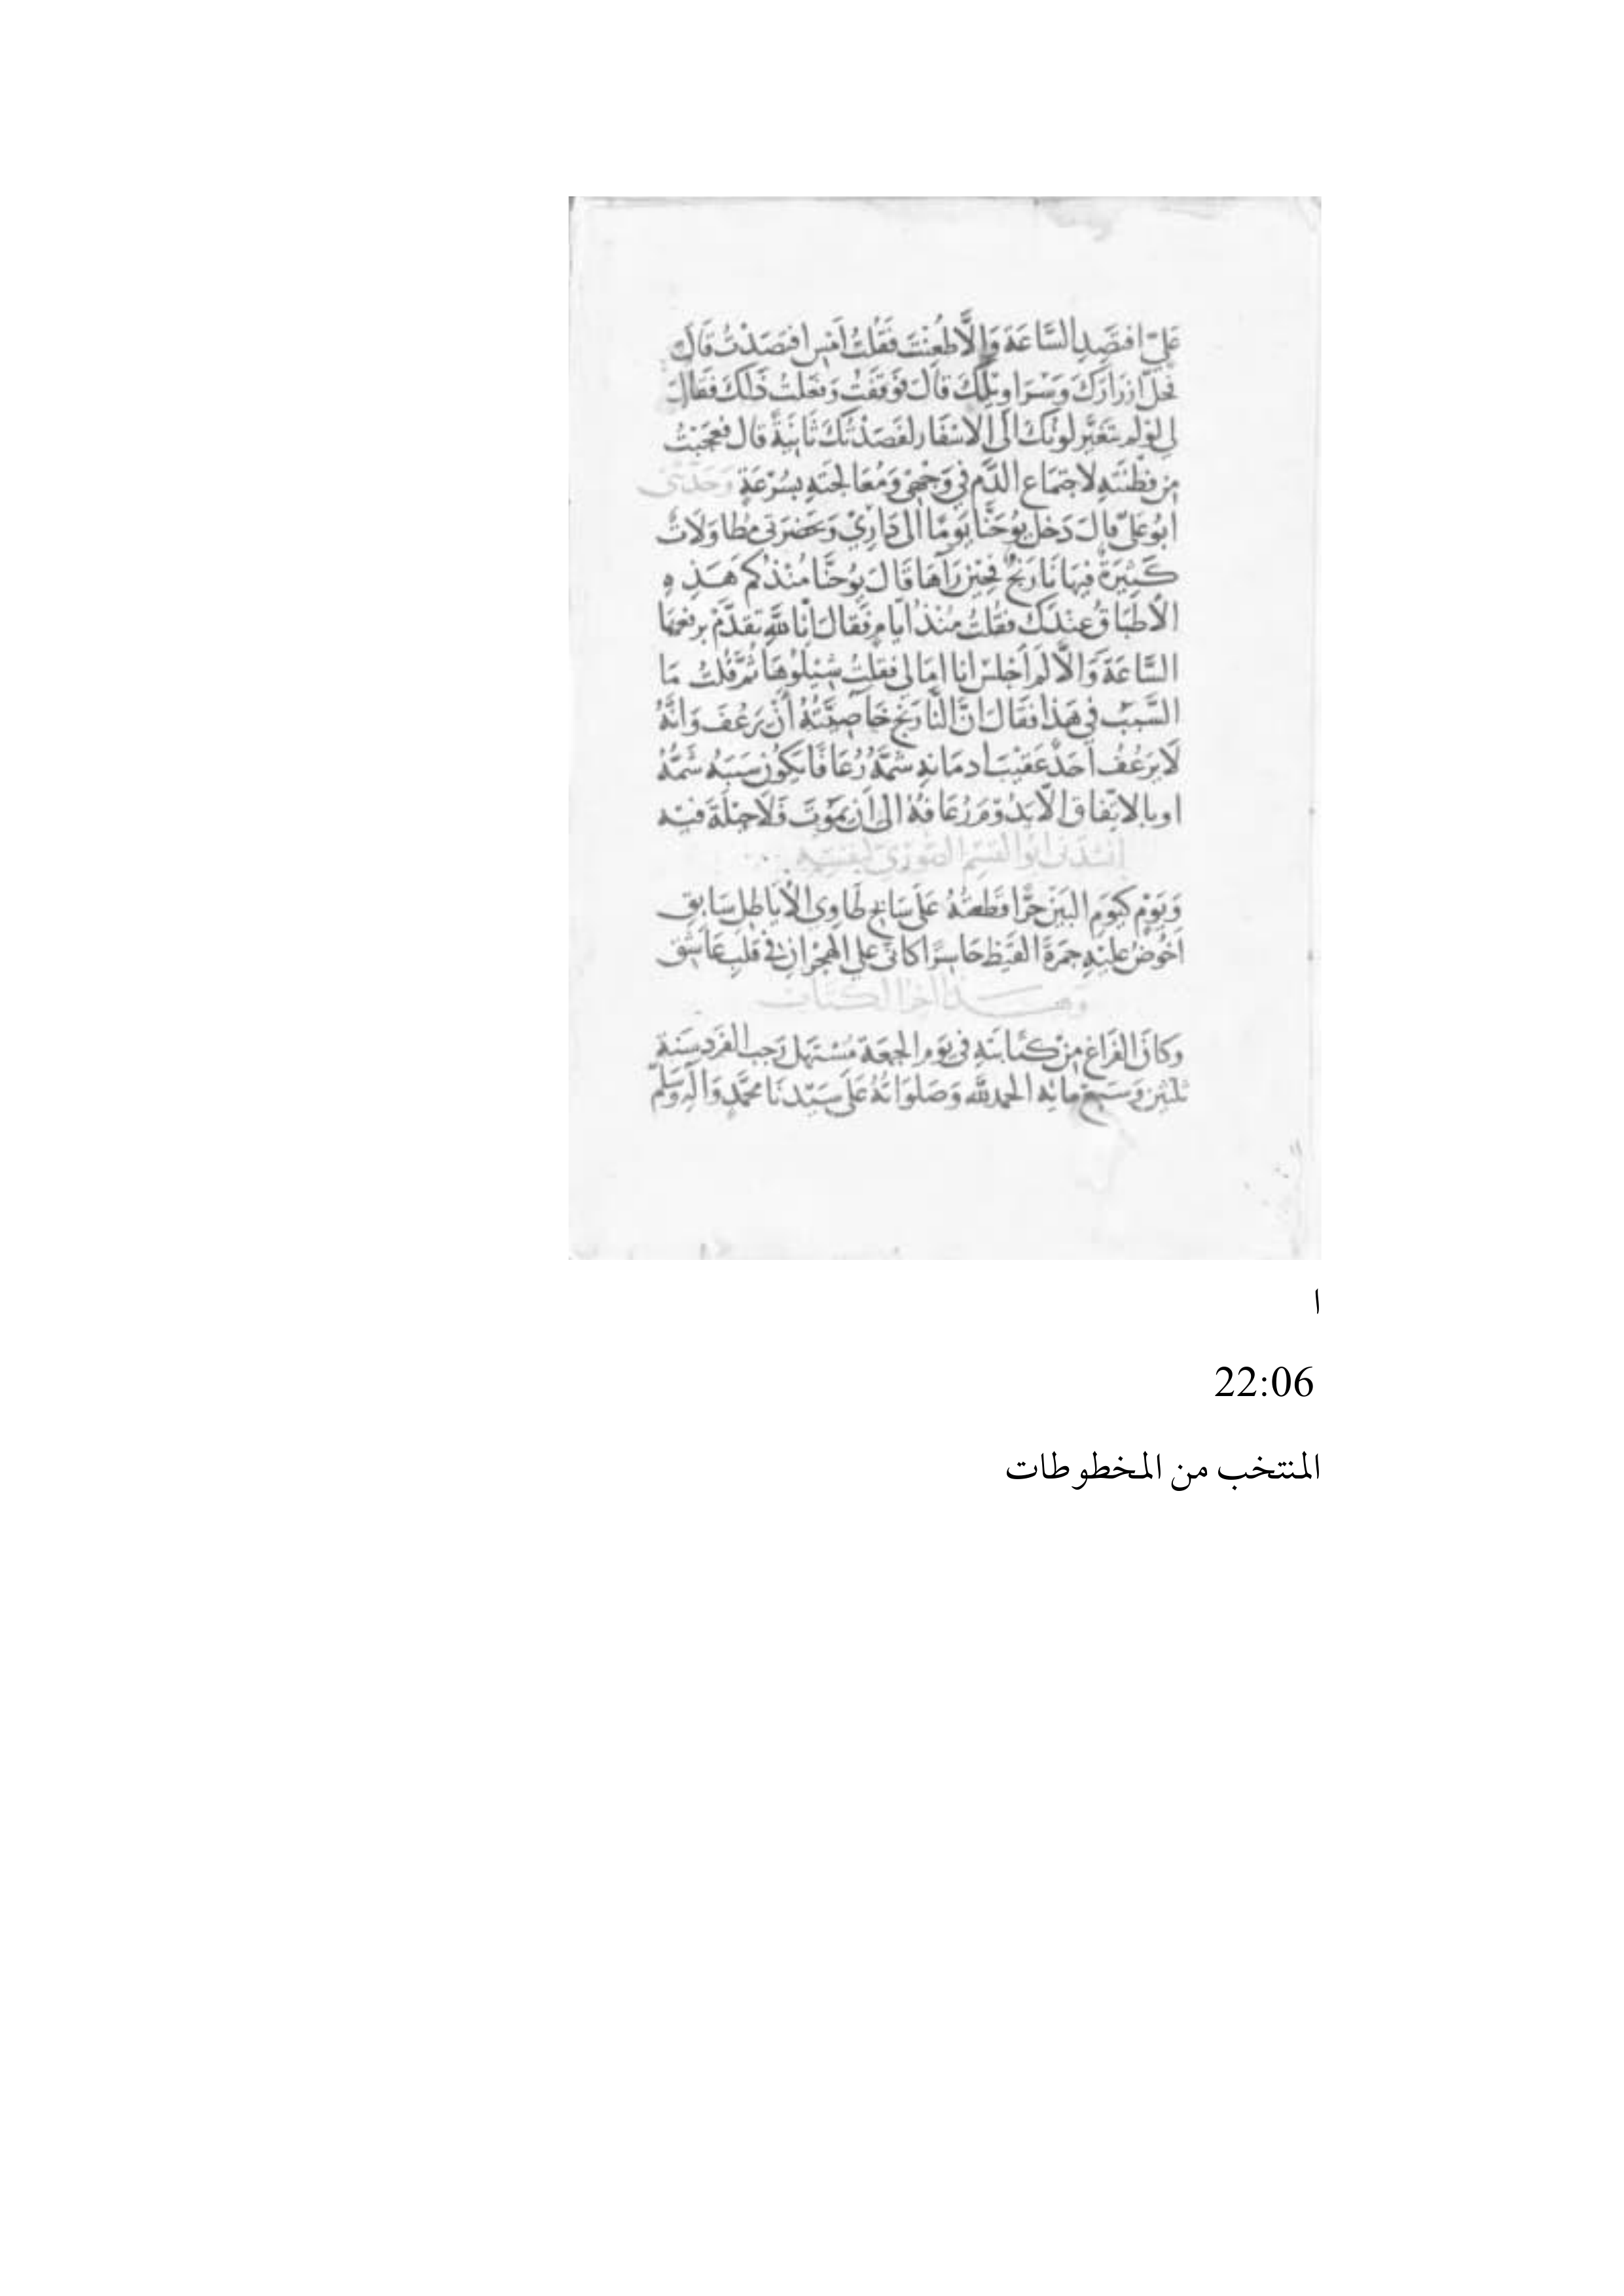 عَليّ افتَصِدِ السَّاعَةَ وَاِلَّا طُعِنْتَ فَقُلتُ اَمْسِ افتَصَدْتُ قَالَ
فَحُلّ ازرَارَكَ وَسَرَاوِيلَكَ قالَ فَوَقَفْتُ وَفَعَلتُ ذَلكَ فقَالَ
لي لوْلم تتَغَيَّر لَونُكَ الَى الاسْفَار لفَصَدْتُكَ ثانِيَةً قال فعَجَبْتُ
مِن فِطْنَتهِ لاجتِمَاع الدَّم في وَجْهي وَمُعَالجتَهِ بسُرْعَةٍ وَحَدَّثَني
ابُو عَليّ قالَ دَخلَ يوُحَنَّا يَومًا الى دَاري وَبحَضرَتي مُطاوَلاتٌ
كَثيرَةٌ فيهَا نَارنجٌ فحِينَ رَآهَا قَالَ يوُحَنَّا مُنْذُكم هَذِهِ
الأطبَاقُ عِندَكَ فقُلتُ مُنْذُ ايَّامٍ فَقالَ انّا للّه تَقدَّمْ برفعِهَا
السَّاعَةَ وَالَّا لم اَجْلسْ انا فقُلتُ شيْلوُهَا ثُمَّ قُلتُ مَا
السَّبَبُ في هَذا فقَالَ انَّ النَّارنجَ خَاصِّيَّتُهُ اَنْ يَرعُفَ وَانَّهُ
لَا يَرعُف اَحَدٌ عَقيْبَ ادمَانهِ شَمَّهُ رُعَافًا يَكُون سَبَبهُ شَمُّهُ
او بالاتّفاق الَّا يَدُوْمَ رُعَافُهُ الى اَن يَمُوْتَ فَلَا حِيْلَةَ فيْه
انشَدَني ابوُ القسِم الصّوُرِيّ لنفسِهِ
وَيَومٍ كيَومِ البَينِ حَرًّا قطَعتُهُ عَلَى سَابحٍ طَاوِى الأيَاطِل سَابِقِ
اَخوُضُ عَليْهِ جمرَةَ القَيْظِ حَاسِرًا كاَنّي عَلى الهِجْرانِ في قلبِ عَاشِقِ
وهَذَا آخرُ الكتَابِ
وَكانَ الفَرَاغ مِنْ كتَابتهِ في يَومِ الجمُعَةِ مُسْتَهَل رَجب الفَرد سَنَة
ثلثينَ وَسَبعِ مائةٍ الحمدُ للّهِ وَصَلوَاتهُ عَلَى سَيّدنَا محمَّدٍ وَآلِهِ وَسَلَّمَ
ا
22:06
المنتخب من المخطوطات